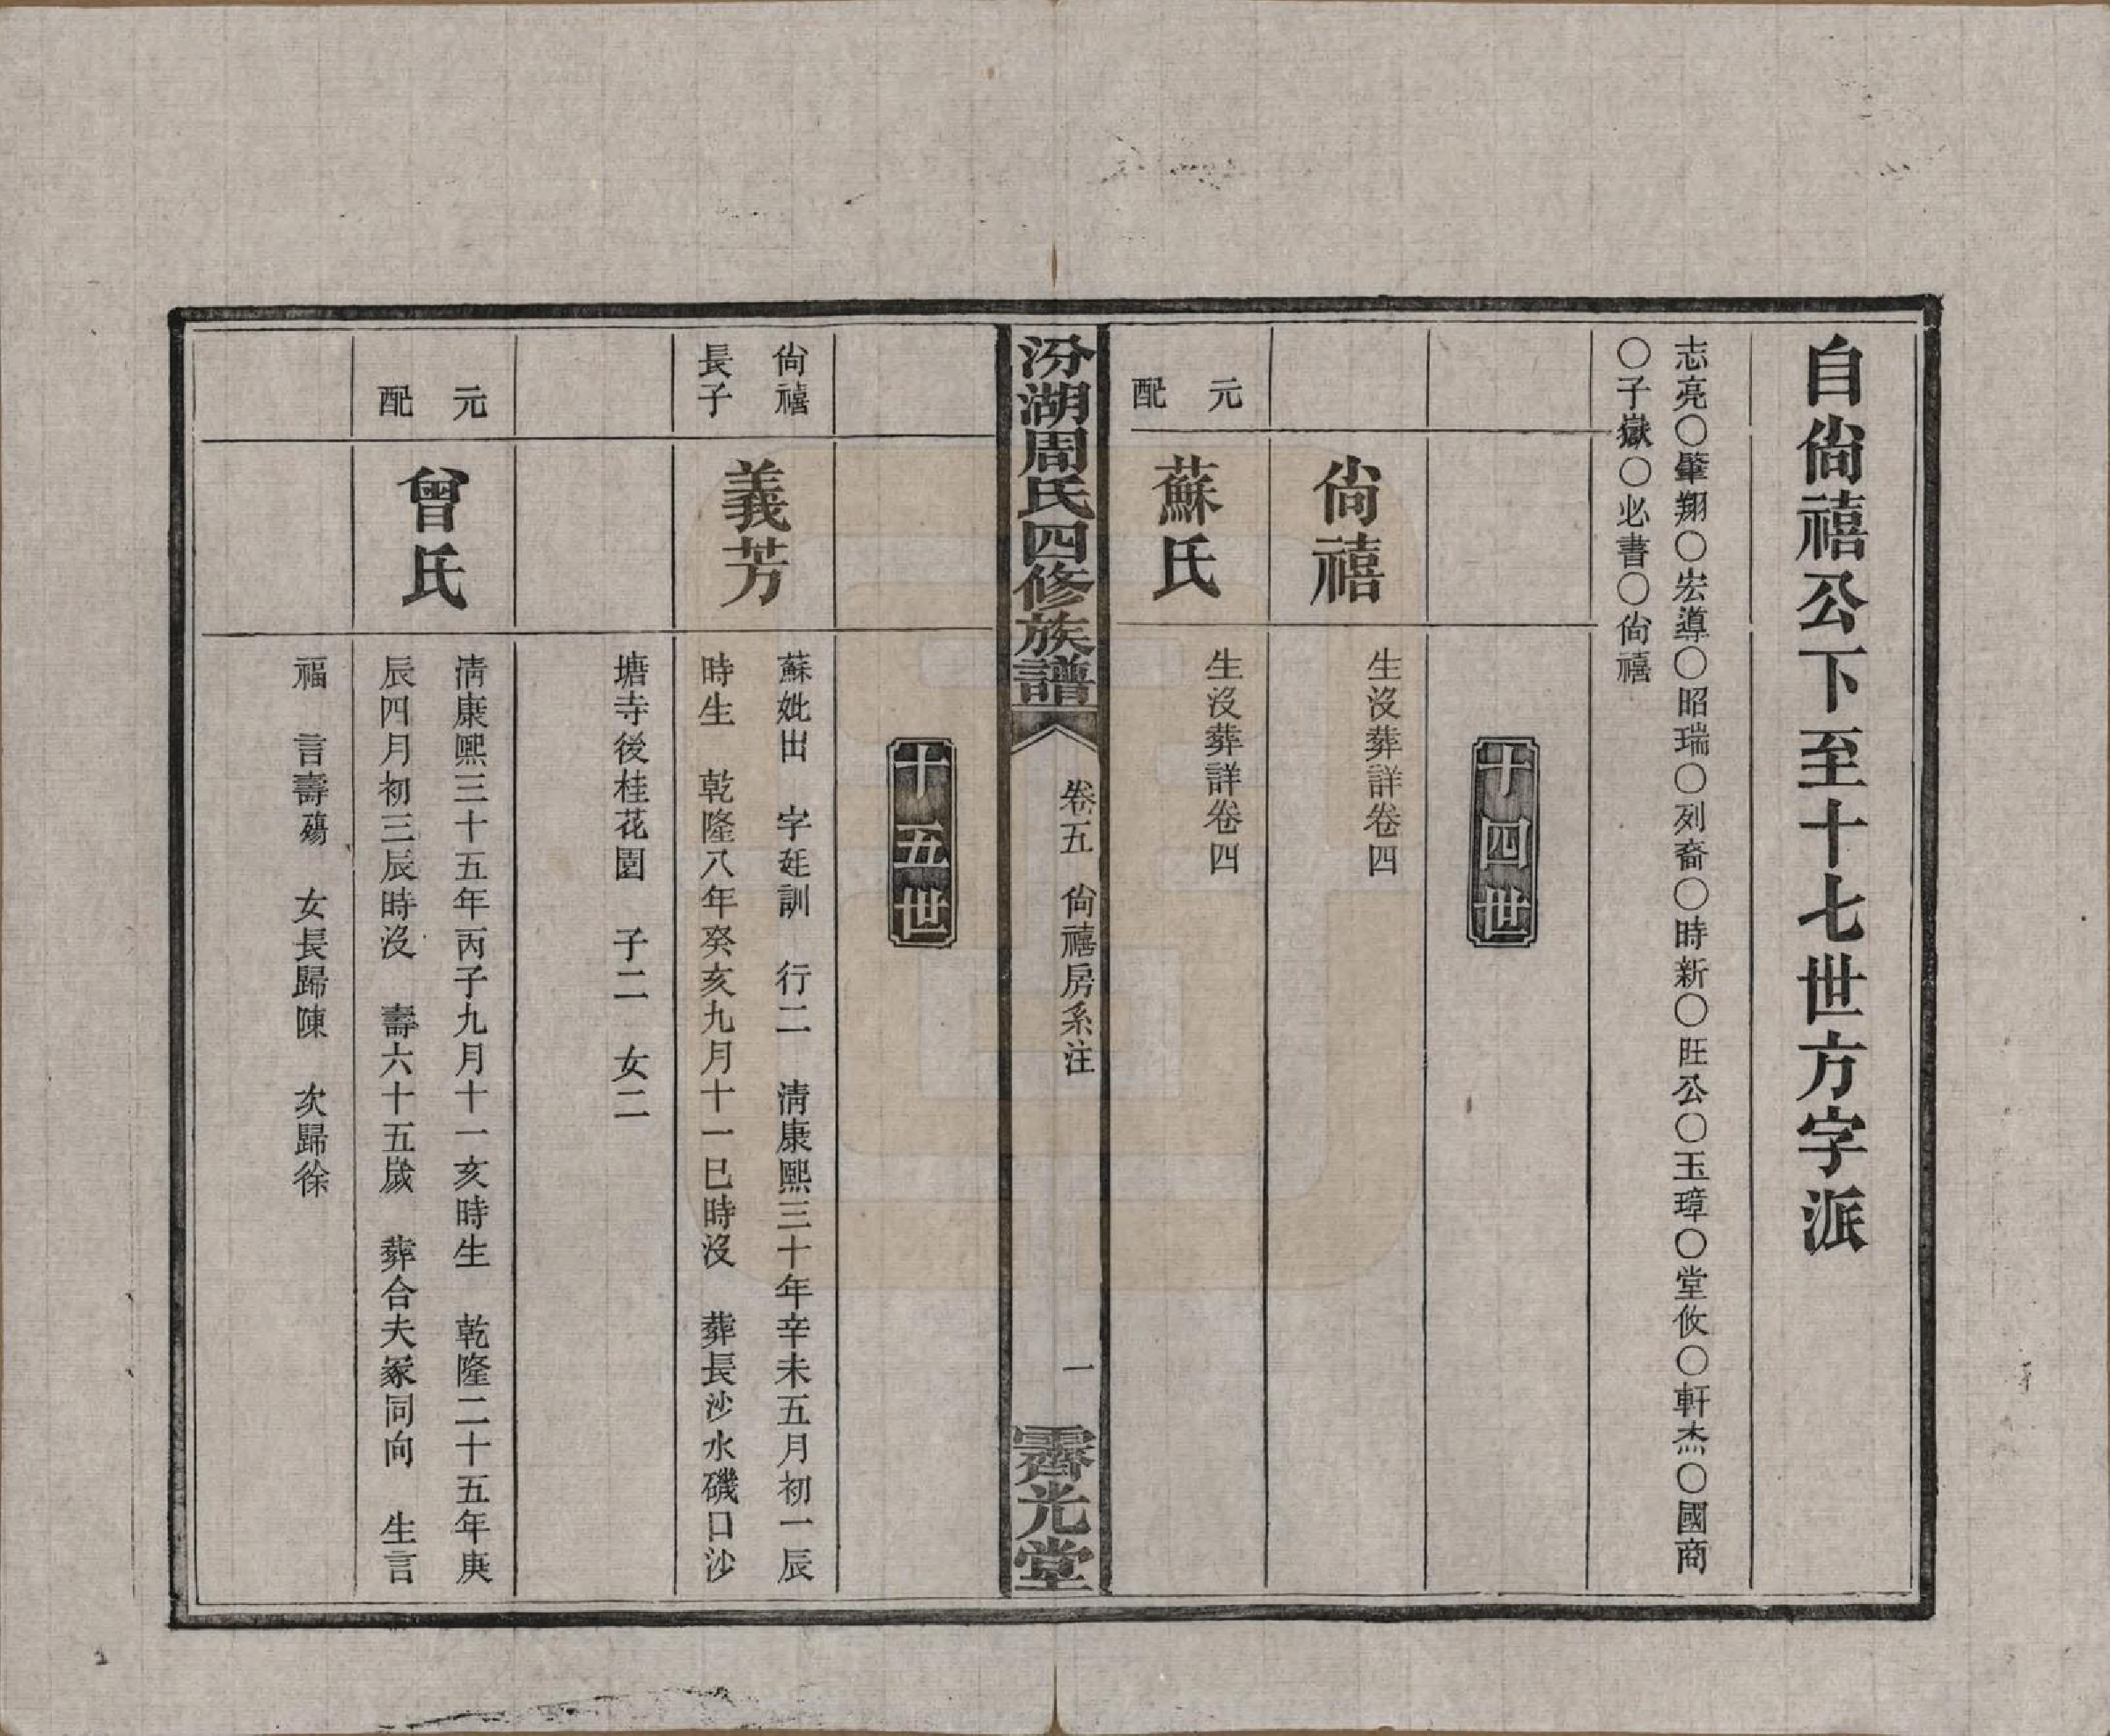 自尙禧公下至十七世方字派
志亮〇肇翔〇宏導〇昭瑞〇列裔〇時新〇旺公〇玉璋〇堂攸〇軒杰〇國商
〇子嶽〇必書〇尙禧
十四世
尙禧
生沒葬詳卷四
元配
蘇氏
生沒葬詳卷四
汾湖周氏四修族譜
卷五 尙禧房系注
一
霽光堂
十五世
尙禧
長子
義芳
蘇妣出 字廷訓 行二 淸康熙三十年辛未五月初一辰
時生 乾隆八年癸亥九月十一巳時沒 葬長沙水磯口沙
塘寺後桂花園 子二 女二
元配
曾氏
淸康熙三十五年丙子九月十一亥時生 乾隆二十五年庚
辰四月初三辰時沒 壽六十五歲 葬合夫冢同向 生言
福 言壽殤 女長歸陳 次歸徐